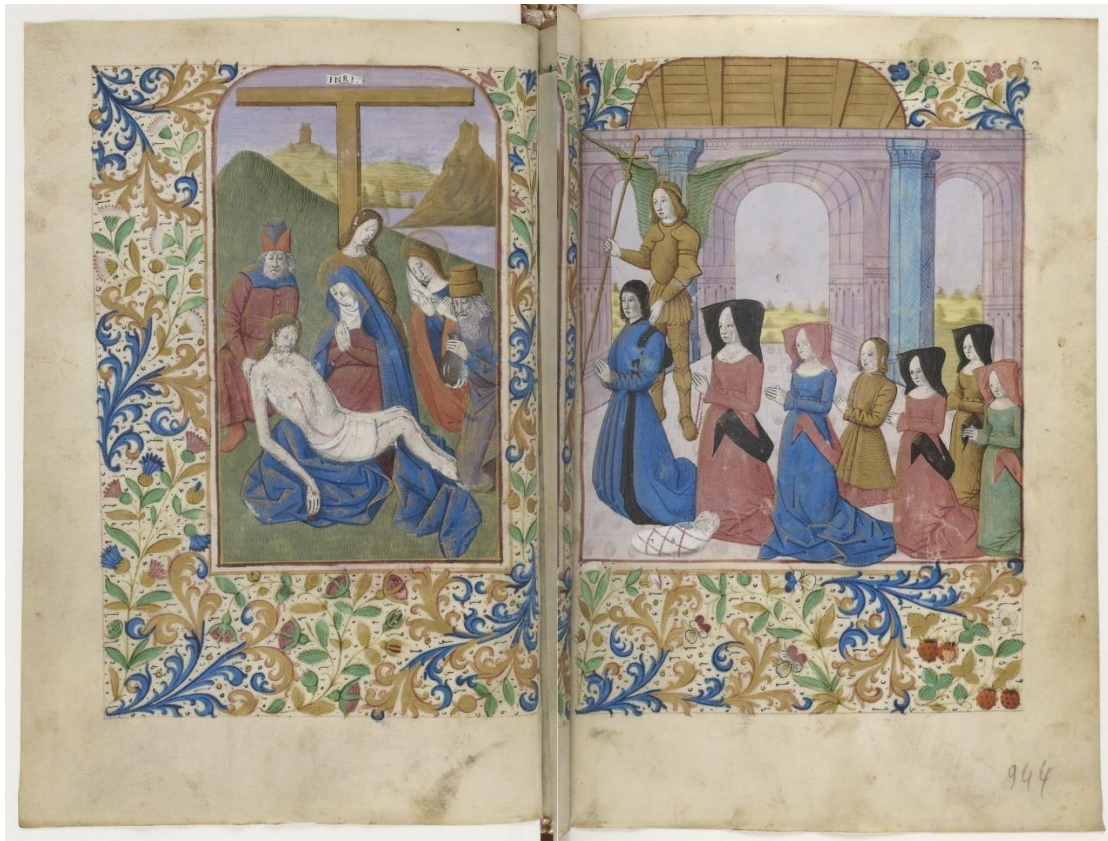 INRI.
2.
944